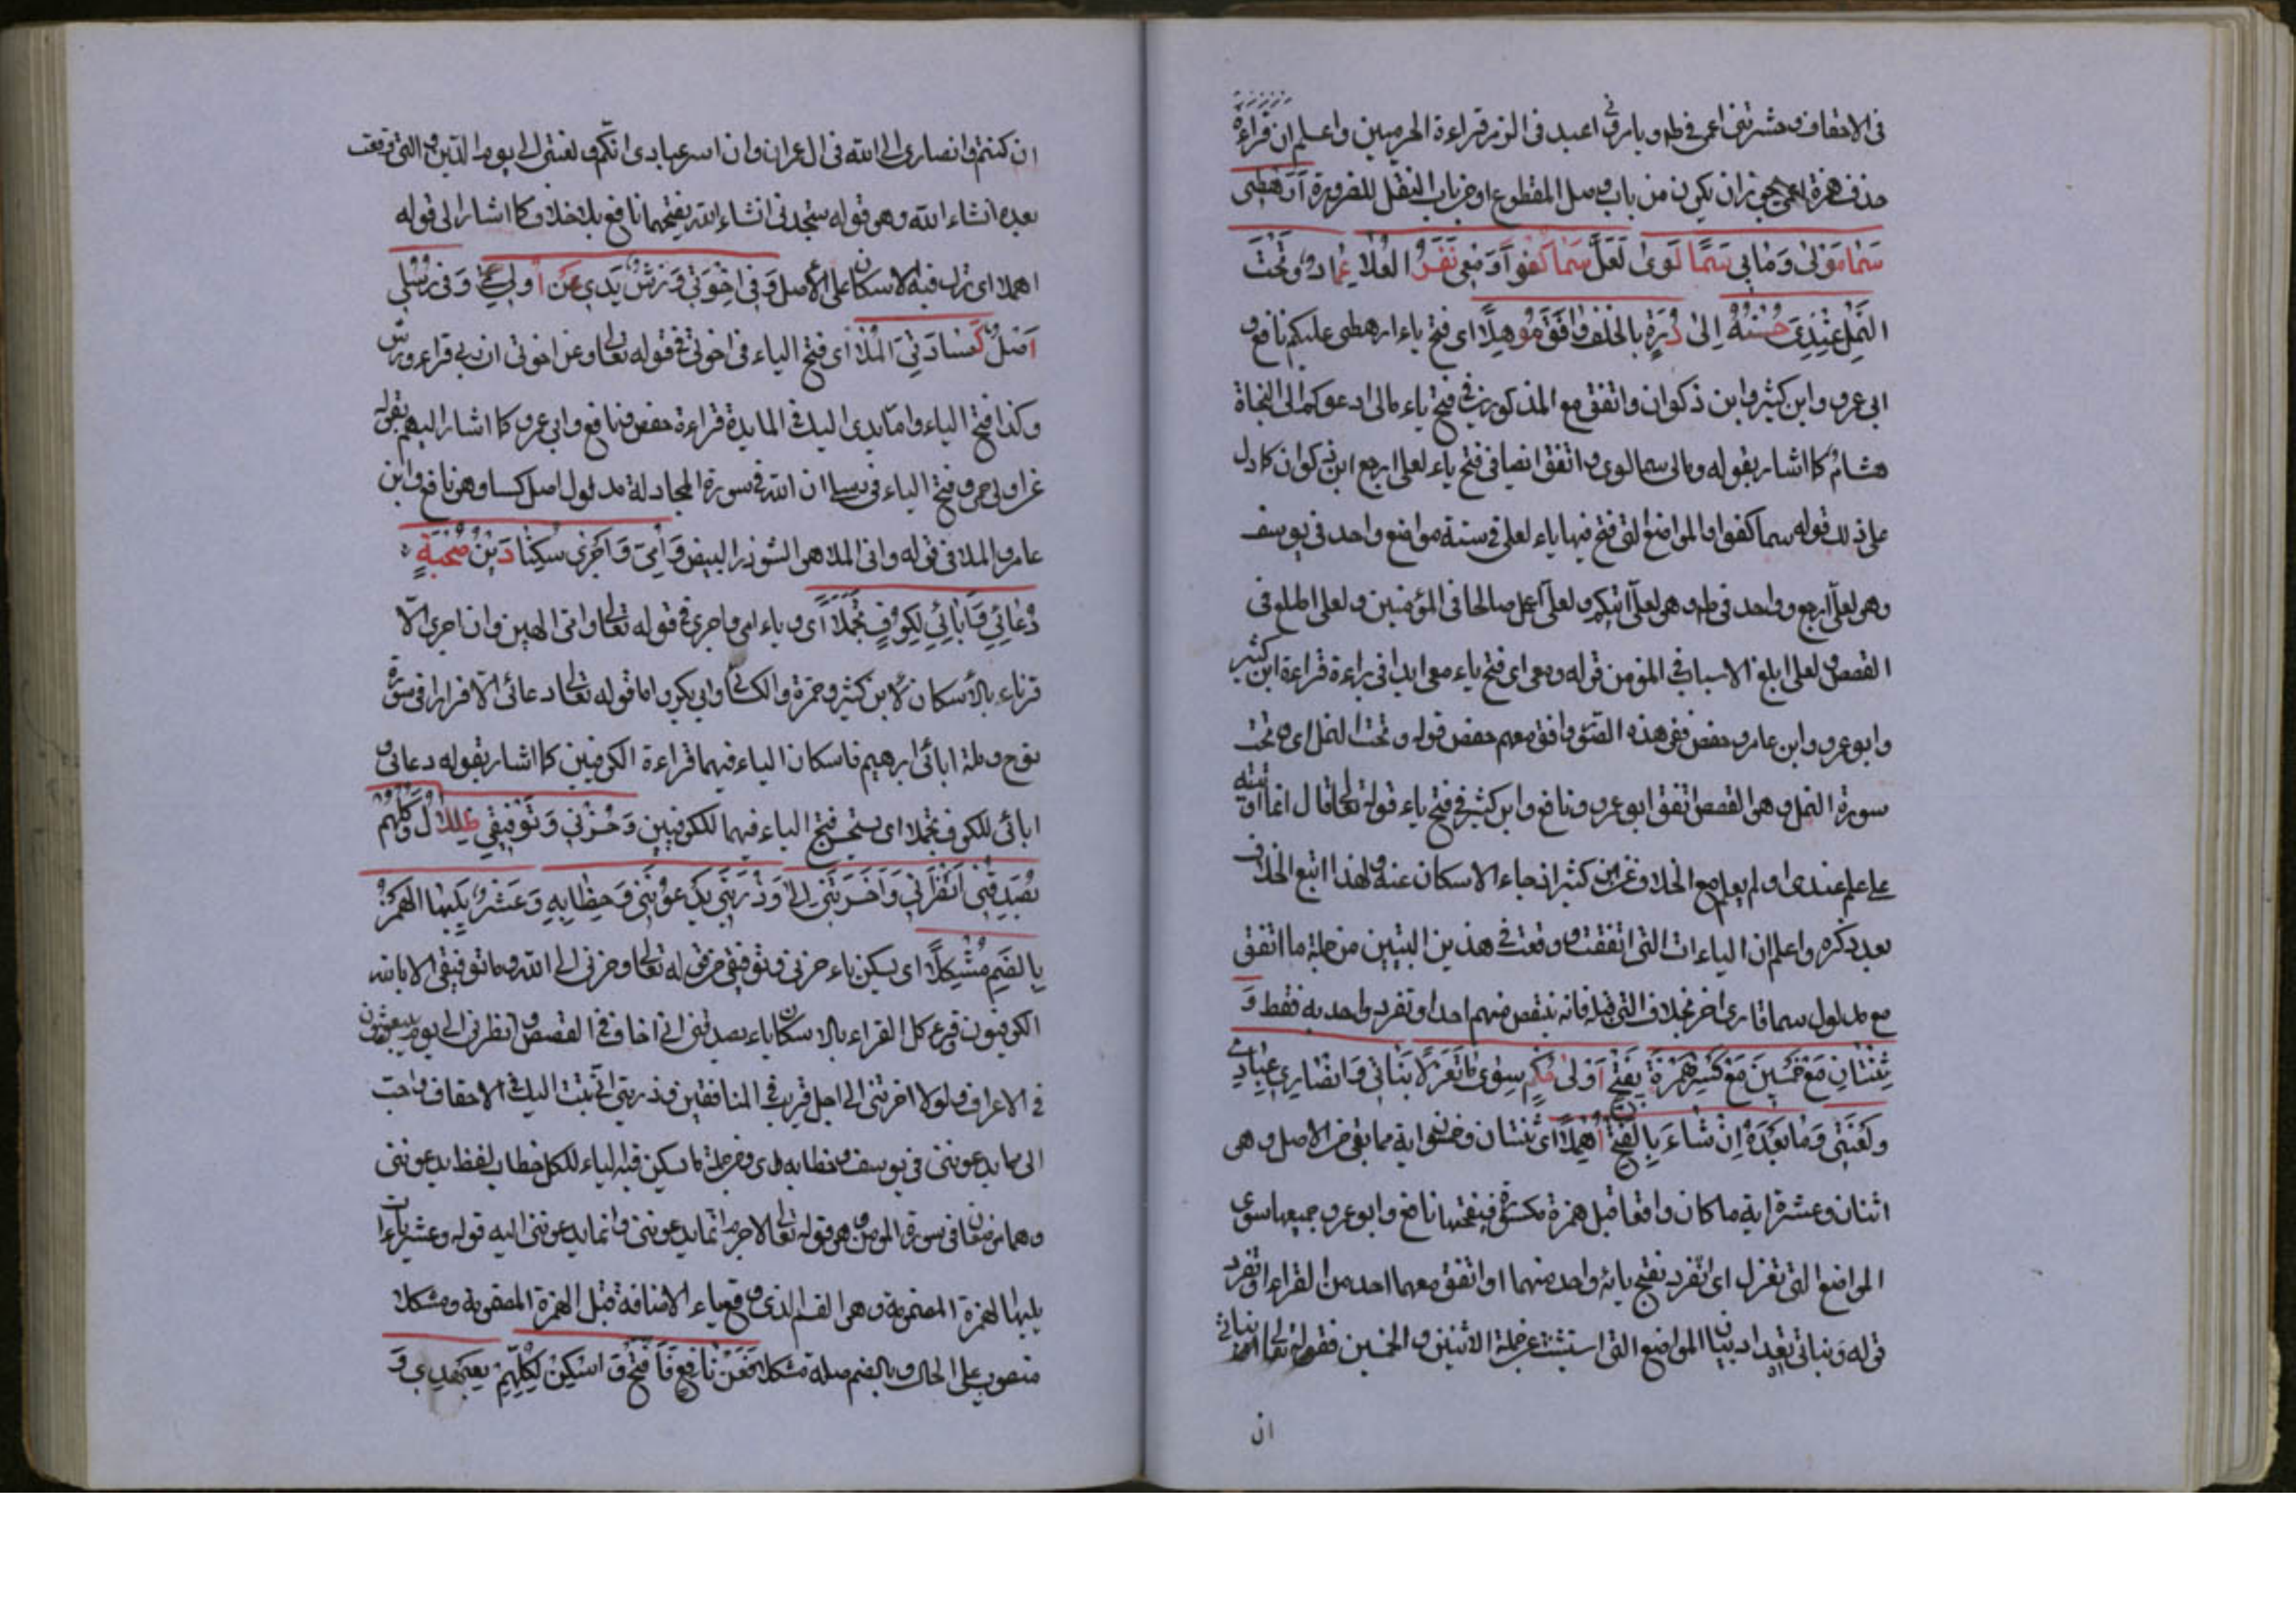 فى الاحقاف وحشرتنى اعمى فى طه و يا رقى اعبد فى الزمر قراءة الحرميين واعلم ان قراءة
حذف همزة اعمى يجوز ان يكون من باب وصل المقطوع او من باب النقل للضرورة اَرَهْطِى
سَمَا مَوْلىً وَمَالِى سَمَا لِوىً لَعَلِّى سَمَا كُفُواً وَمَعِى نَفَرُ العُلا عِمادٌ وَتَحْتَ
النَّمْلِ عِنْدِىَ حُسْنُهُ اِلىٰ دُرِّهِ بِالخُلْفِ وَافَقَ مُوهَلاً اى فتح ياء ارهطى عليكم نافع و
ابى عمرو وابن كثير وابن ذكوان واتفق مع المذكورين فى فتح ياء مالى ادعوكم الى النجاة
هشام كما اشار بقوله ومالى سما لوى واتفق ايضا فى فتح ياء لعلى ارجع ابن ذكوان كما دل
على ذلك قوله سما كفوا والمواضع التى فتح فيها ياء لعلى فى ستة مواضع واحد فى يوسف
وهو لعلى ارجع وواحد فى طه وهو لعلى آتيكم ولعلى اعمل صالحا فى المؤمنين ولعلى اطلع فى
القصص ولعلى ابلغ الاسباب فى المؤمن قوله ومعى اى فتح ياء معى ابدا فى براءة قراءة ابن كثير
وابو عمرو وابن عامر وحفص ففى هذه وافق معهم حفص قوله وتحت النمل اى وتحت
سورة النمل وهى القصص اتفق ابو عمرو ونافع وابن كثير فى فتح ياء قوله تعالى قال انما اوتيته
على علم عندى اولم يعلم مع الخلاف عن ابن كثير اذ جاء الاسكان عنه ولهذا اتبع الخلاف
بعد ذكره واعلم ان الياءات التى اتفقت ووقعت فى هذين البيتين من جملة ما اتفق
مع مدلول سما قارئ اخر بخلاف التى قبله فانه ينقص منهم احدا وتفرد واحد به فقط وَ
ثِنْتَانِ مَعْ خَمْسِينَ مَعْ كَسْرِ هَمْزَةٍ بِفَتْحِ اُولى حُكْمٍ سِوىٰ مَا تَعَزَّلاَ بَنَاتى وَاَنْصَارى عِبَادى
وَلَعْنَتِى وَمَا بَعْدَهُ اِنْ شَاءَ بِالفَتْحِ اُهْمِلاَ اى ثنتان وخمسون اية مما بقى من الاصل وهى
اثنان وعشرة اية ما كان واقعا قبل همزة مكسورة فيفتحها نافع وابو عمرو جميعها سوى
المواضع التى تعزل اى تفرد بفتح يائه واحد منهما او اتفق معهما احد من القراء او تفرد
قوله وبناتى تعداد بيان المواضع التى استثنت عن جملة الاثنين والخمسين فقوله تعالى بناتى
ان
ان كنتم وانصارى الى الله فى ال عمران وان اسر عبادى انكم ولعنتى الى يوم الدين والتى وقعت
بعده ان شاء الله وهو قوله ستجدنى ان شاء الله يفتحهما نافع بلا خلاف كما اشار الى قوله
اهملا اى ترك فيه الاسكان على الاصل وَفى اِخْوَتِى وَرْشٌ يَدِى عَنْ اُولِى حِمىً وَفى رُسُلِى
اَصْلٌ كَسَا وَافِىَ المُلاَ اى فتح الياء فى اخوتى فى قوله تعالى وعن اخوتى ان بى قراءة ورش
وكذا فتح الياء وما يدى اليك فى المايدة قراءة حفص ونافع وابى عمرو كما اشار اليهم بقوله
عن اولى حمى وفتح الياء فى رسلى ان الله فى سورة المجادلة مدلول اصل كسا وهو نافع وابن
عامر والملا فى قوله وافى الملا هى البيض وَاُمِّى وَاَجْرِى سُكِّنَا دِينُ صُحْبَةٍ
دُعَائِى وَآبَائِى لِكُوفٍ تَجَمَّلاَ اى وياء امى واجرى فى قوله تعالى وامى الهين وان اجرى الا
قراءه بالاسكان لابن كثير وحمزة والكسائى وابى بكر واما قوله تعالى دعائى الا فرارا فى سورة
نوح وملة ابائى ابرهيم فاسكان الياء فيهما قراءة الكوفيين كما اشار بقوله دعائى و
ابائى للكوف تجملا اى يستحسن فتح الياء فيهما للكوفيين وَحُزْنِى وَتَوْفِيقِى ظِلاَلٌ وَكُلُّهُمْ
يُصَدِّقْنِى اَنْظِرْنِى وَاَخَّرْتَنِى اِلىٰ وَذُرِّيَّتِى يَدْعُونَنِى وَخِطَابُهُ وَعَشْرٌ يَلِيهَا الهَمْزُ
بِالضَّمِّ مُشْكِلاً اى يسكن ياء حزنى وتوفيقى من قوله تعالى وحزنى الى الله وما توفيقى الا بالله
الكوفيون وقرء كل القراء بالاسكان ياء يصدقنى انى اخاف فى القصص وانظرنى الى يوم يبعثون
فى الاعراف ولولا اخرتنى الى اجل قريب فى المنافقين وذريتى انى تبت اليك فى الاحقاف واحب
الى مما يدعوننى فى يوسف وخطابه اى ومن جملة ما يسكن فيه الياء للكل خطاب لفظ يدعوننى
وهما موضعان فى سورة المؤمن وهو قوله تعالى لا جرم انما يدعوننى وانما يدعوننى اليه قوله وعشر ياءات
يليها الهمزة المضمومة وهى القسم الذى وقع ياء الاضافة قبل الهمزة المضمومة ومشكلا
منصوب على الحال وبالضم صلة مشكلا فَعَنْ نَافِعٍ فَافْتَحْ وَاسْكِنْ لِكُلِّهِمْ بِعَهْدِى وَ